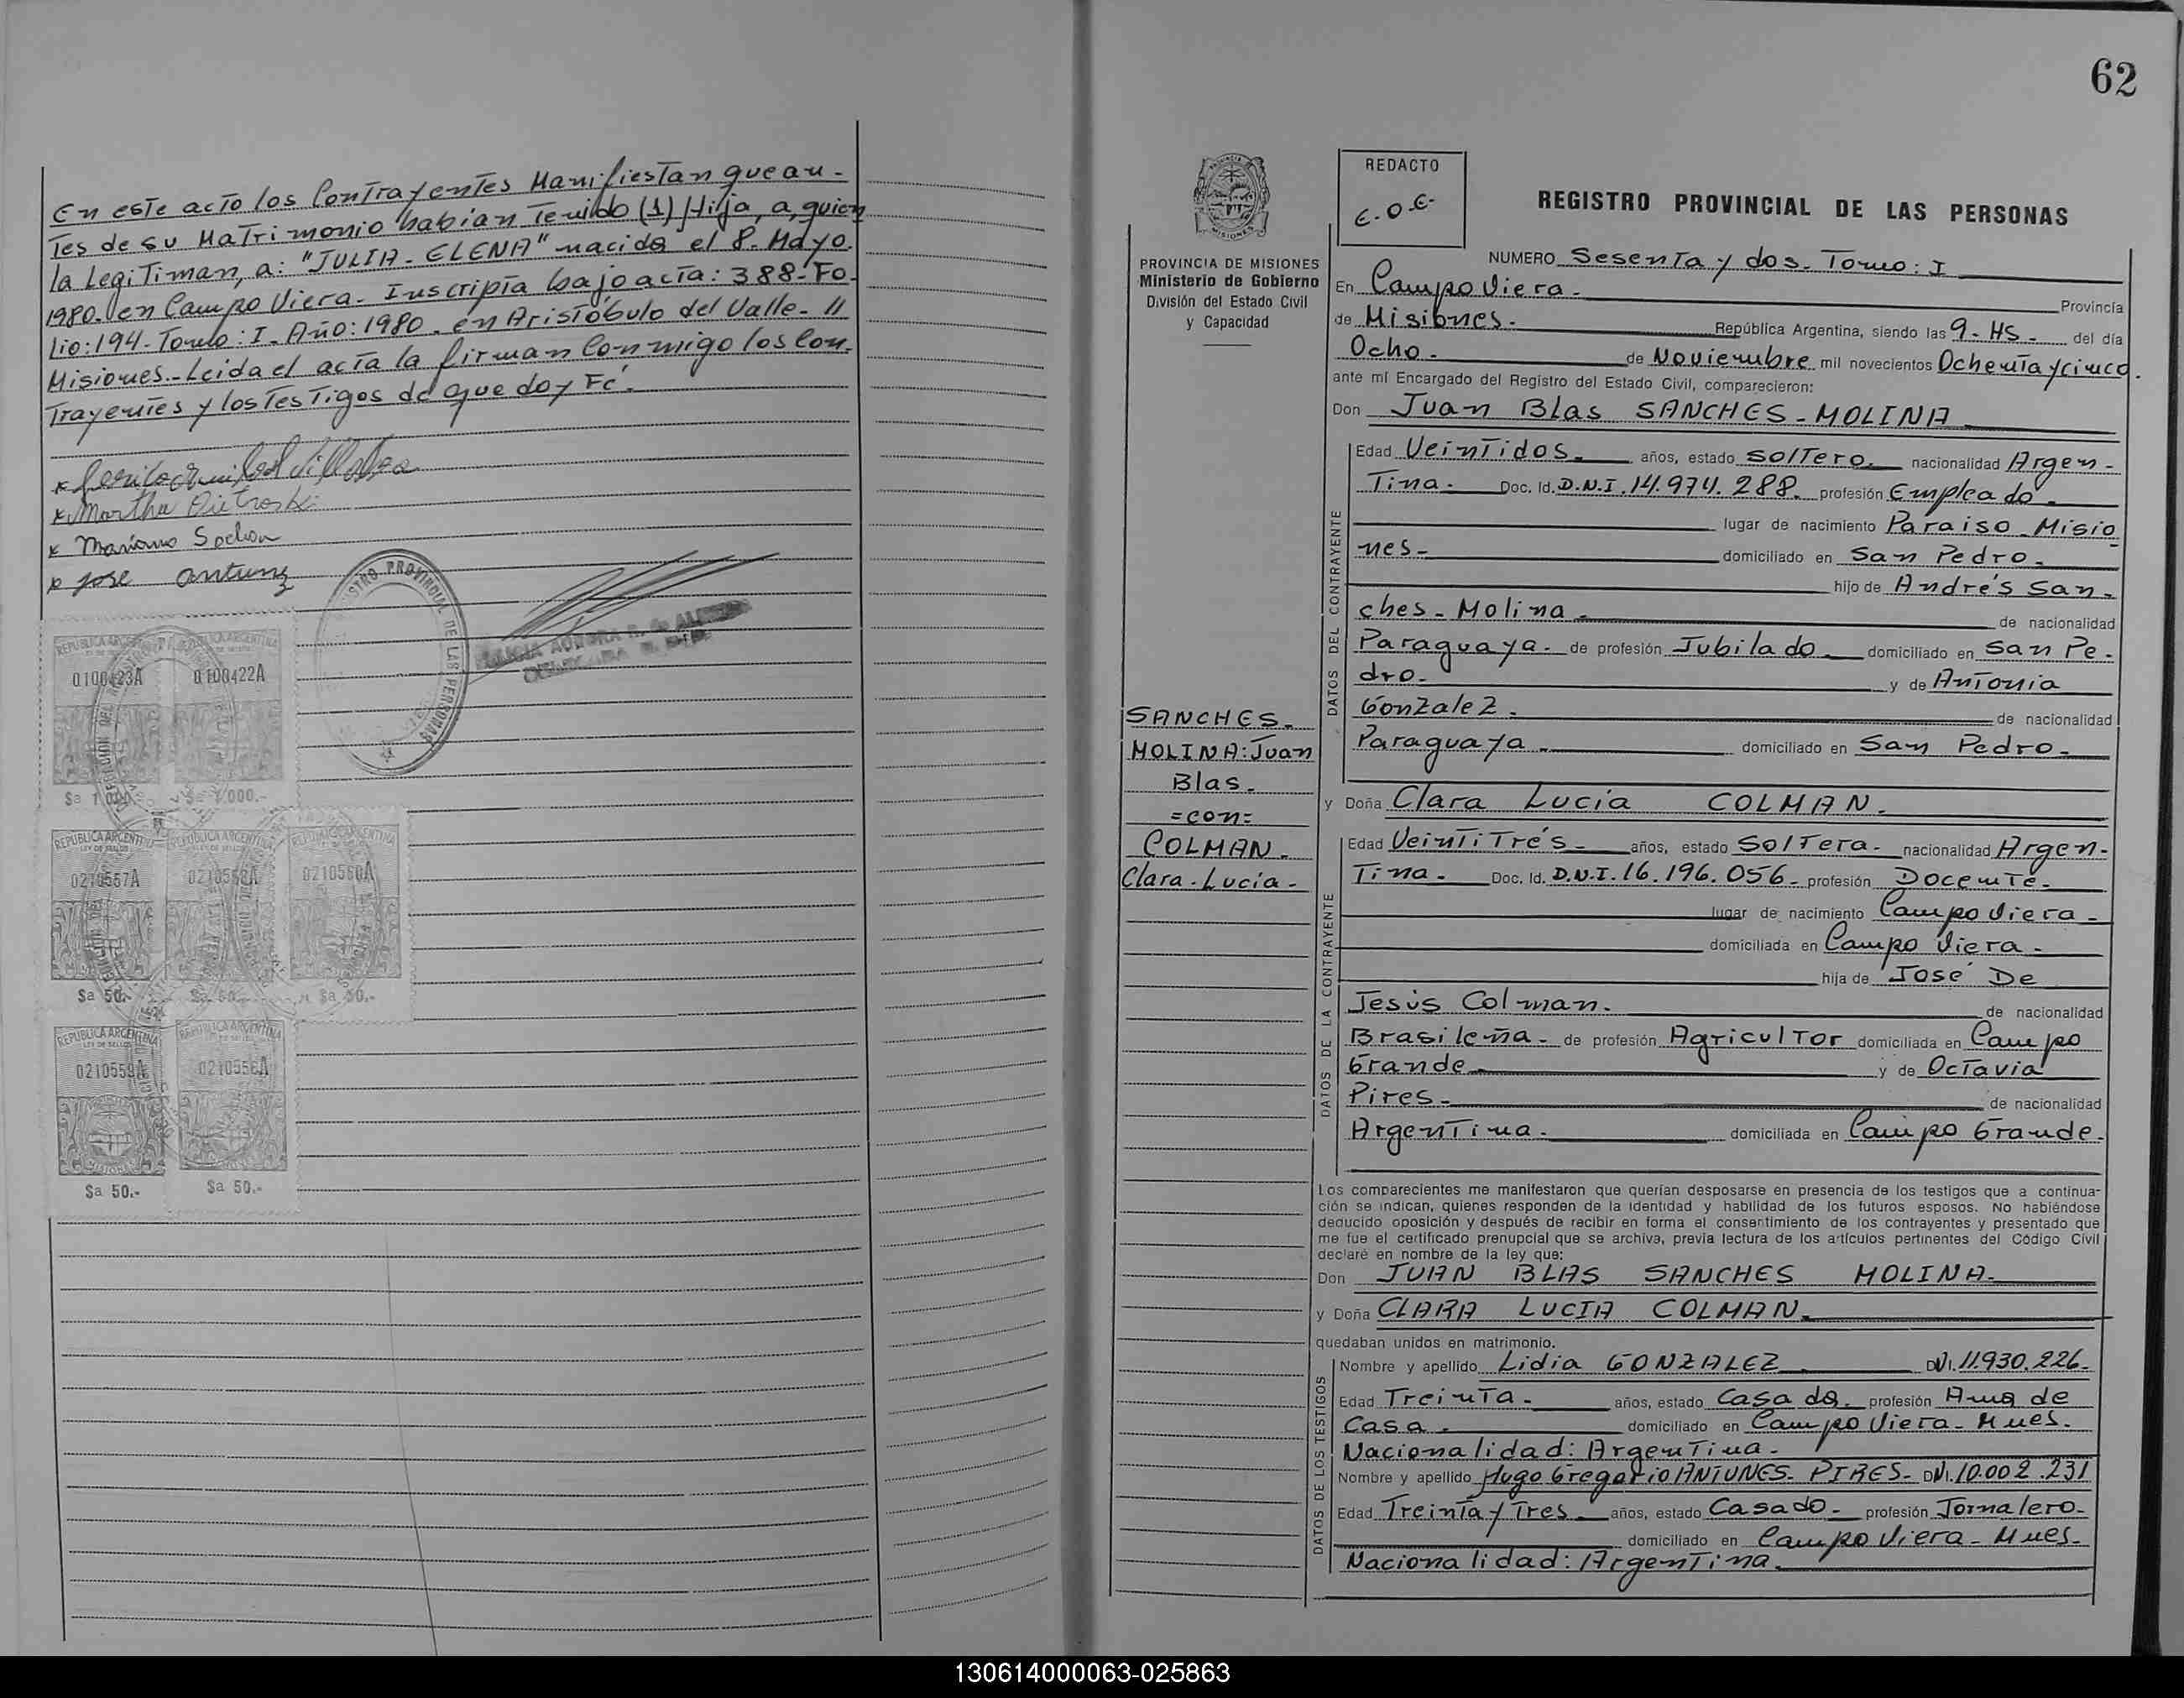 En este acto los Contrayentes Manifiestan que an-
tes de su Matrimonio habian Tenido (1) Hija, a, quien
la LegiTiman, a: "JULIA - ELENA" nacida el 8. Mayo.
1980. en Campo Viera. Inscripta bajo acta: 388- Fo-
lio: 194- Tomo: I. Año: 1980. en Aristóbulo del Valle- //
Misiones.- Leida el acta la firman Conmigo los Con-
Trayentes y los Testigos de que doy Fé.
x Martha
x Mariano
x Jose Antunez
REGISTRO PROVINCIAL DE LAS PERSONAS
REPUBLICA ARGENTINA
REPUBLICA ARGENTINA
0100423A 0100422A
$a 1.000.- $a 1.000.-
REPUBLICA ARGENTINA
LEY DE SELLOS
REPUBLICA ARGENTINA
LEY DE SELLOS
REPUBLICA ARGENTINA
0210557A 0210558A 0210560A
$a 50.- $a 50.- $a 50.-
REPUBLICA ARGENTINA
LEY DE SELLOS
REPUBLICA ARGENTINA
$a 50.- $a 50.-
62
PROVINCIA DE MISIONES
Ministerio de Gobierno
División del Estado Civil
y Capacidad
SANCHES-
MOLINA: Juan
Blas.
=con=
COLMAN-
Clara-Lucia-
REDACTO
E.O.E.
REGISTRO PROVINCIAL DE LAS PERSONAS
NUMERO Sesenta y dos- Tomo: I
En Campo Viera- Provincia
de Misiones- República Argentina, siendo las 9- HS- del día
Ocho- de Noviembre mil novecientos Ochenta y cinco.
ante mí Encargado del Registro del Estado Civil, comparecieron:
Don Juan Blas SANCHES-MOLINA
DATOS DEL CONTRAYENTE
Edad Veintidos- años, estado solTero- nacionalidad Argen-
Tina- Doc. Id. D.N.I. 14.974.288- profesión Empleado-
lugar de nacimiento Paraiso-Misio
nes- domiciliado en San Pedro-
hijo de Andrés San-
ches-Molina- de nacionalidad
Paraguaya- de profesión Jubilado- domiciliado en San Pe-
dro- y de Antonia
Gonzalez- de nacionalidad
Paraguaya- domiciliado en San Pedro-
y Doña Clara Lucia COLMAN-
DATOS DE LA CONTRAYENTE
Edad VeintiTrés- años, estado SolTera- nacionalidad Argen-
Tina- Doc. Id. D.N.I. 16.196.056- profesión Docente-
lugar de nacimiento Campo Viera-
domiciliada en Campo Viera-
hija de José De
Jesús Colman. de nacionalidad
Brasileña- de profesión AgriculTor domiciliada en Campo
Grande- y de Octavia
Pires- de nacionalidad
Argentina- domiciliada en Campo Grande-
Los comparecientes me manifestaron que querían desposarse en presencia de los testigos que a continua-
ción se indican, quienes responden de la identidad y habilidad de los futuros esposos. No habiéndose
deducido oposición y después de recibir en forma el consentimiento de los contrayentes y presentado que
me fue el certificado prenupcial que se archiva, previa lectura de los artículos pertinentes del Código Civil
declaré en nombre de la ley que:
Don JUAN BLAS SANCHES MOLINA-
y Doña CLARA LUCIA COLMAN-
quedaban unidos en matrimonio.
DATOS DE LOS TESTIGOS
Nombre y apellido Lidia GONZALEZ DNI. 11.930.226-
Edad Treinta- años, estado Casada- profesión Ama de
Casa- domiciliado en Campo Viera- Mnes.
Nacionalidad: Argentina-
Nombre y apellido Hugo Gregorio ANTUNES- PIRES- DNI. 10.002.231
Edad Treinta y Tres- años, estado Casado- profesión Jornalero-
domiciliado en Campo Viera- Mnes-
Nacionalidad: Argentina-
130614000063-025863